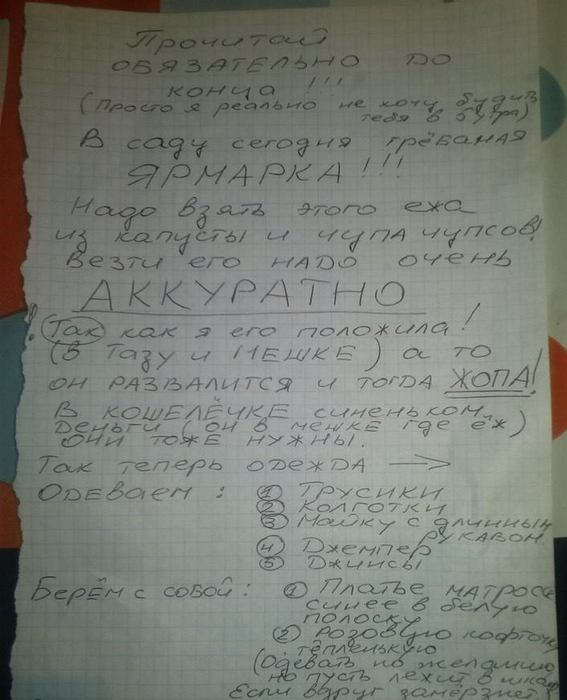 Прочитай
ОБЯЗАТЕЛЬНО ДО
конца !!!
(Просто я реально не хочу будить
тебя в 6 утра)
В саду сегодня грёбаная
ЯРМАРКА!!!
Надо взять этого ежа
из капусты и чупа чупсов!
Везти его НАДО очень
АККУРАТНО
! Так как я его положила!
(в тазу и МЕШКЕ) а то
он РАЗВАЛИТСЯ и тогда ЖОПА!
В КОШЕЛЁЧКЕ синеньком
Деньги (он в мешке где ёж)
ОНИ ТОЖЕ НУЖНЫ.
Так теперь ОДЕЖДА →
Одеваем : ① Трусики
② Колготки
③ Майку с длинным
рукавом
④ Джемпер
⑤ Джинсы
Берём с собой : ① Платье матроска
синее в белую
полоску
② розовую кофточку
тёпленькую
(Одевать по желанию
но пусть лежит в шкафу
Если вдруг замёрзнет